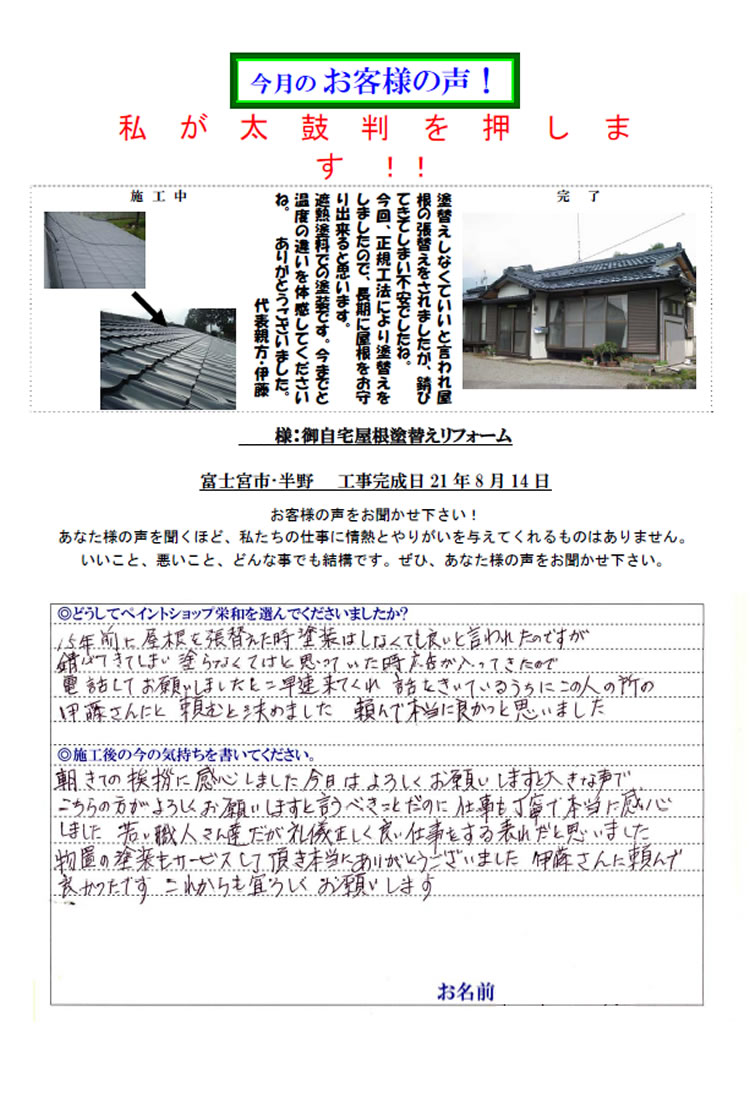 今月の お客様の声！
私が太鼓判を押しま
す！！
施工中
塗替えしなくていいと言われ屋
根の張替えをされましたが、錆び
てきてしまい不安でしたね。
今回、正規工法により塗替えを
しましたので、長期に屋根をお守
り出来ると思います。
遮熱塗料での塗装です。今までと
温度の違いを体感してください
ね。　ありがとうございました。
代表親方・伊藤
完了
様：御自宅屋根塗替えリフォーム
富士宮市・半野　工事完成日21年8月14日
お客様の声をお聞かせ下さい！
あなた様の声を聞くほど、私たちの仕事に情熱とやりがいを与えてくれるものはありません。
いいこと、悪いこと、どんな事でも結構です。ぜひ、あなた様の声をお聞かせ下さい。
◎どうしてペイントショップ栄和を選んでくださいましたか?
15年前に屋根を張替えた時塗装はしなくても良いと言われたのですが
錆びてきてしまい塗らなくてはと思っていた時広告が入ってきたので
電話してお願いしましたところ早速来てくれ 話をきいているうちにこの人の所の
伊藤さんにと 頼むと決めました 頼んで本当に良かったと思いました
◎施工後の今の気持ちを書いてください。
朝きての挨拶に感心しました今日はよろしくお願いしますと大きな声で
こちらの方がよろしくお願いしますと言うべきことだのに 仕事も丁寧で本当に感心
しました 若い職人さん達だが礼儀正しく良い仕事をする表れだと思いました
物置の塗装もサービスして頂き本当にありがとうございました 伊藤さんに頼んで
良かったです これからも宜ろしくお願いします
お名前